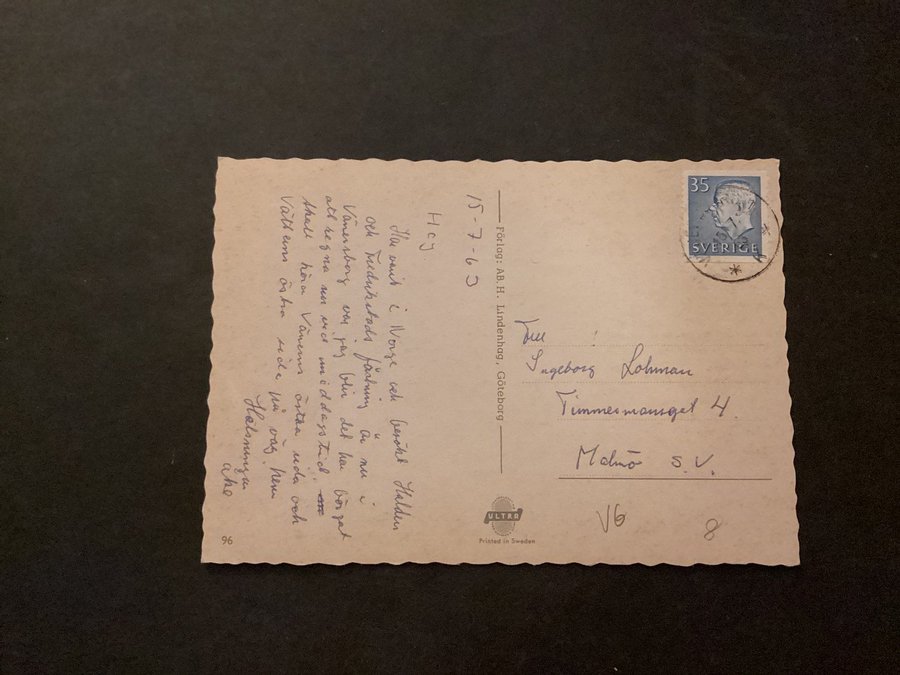 15-7-63
Hej
Har varit i Norge och besökt Halden
och Fredrikstads fästning är nu i
Vänersborg var jag blir det har börjat
att regna nu vid middagstid.
skall köra Vänerns östra sida och
Vätterns östra sida på väg hem
Hälsningar
Åke
Förlag: AB. H. Lindenhag, Göteborg
35
SVERIGE
Till
Ingeborg Lohman
Timmermansgat 4.
Malmö S.V.
VG
8
ULTRA
Printed in Sweden
96